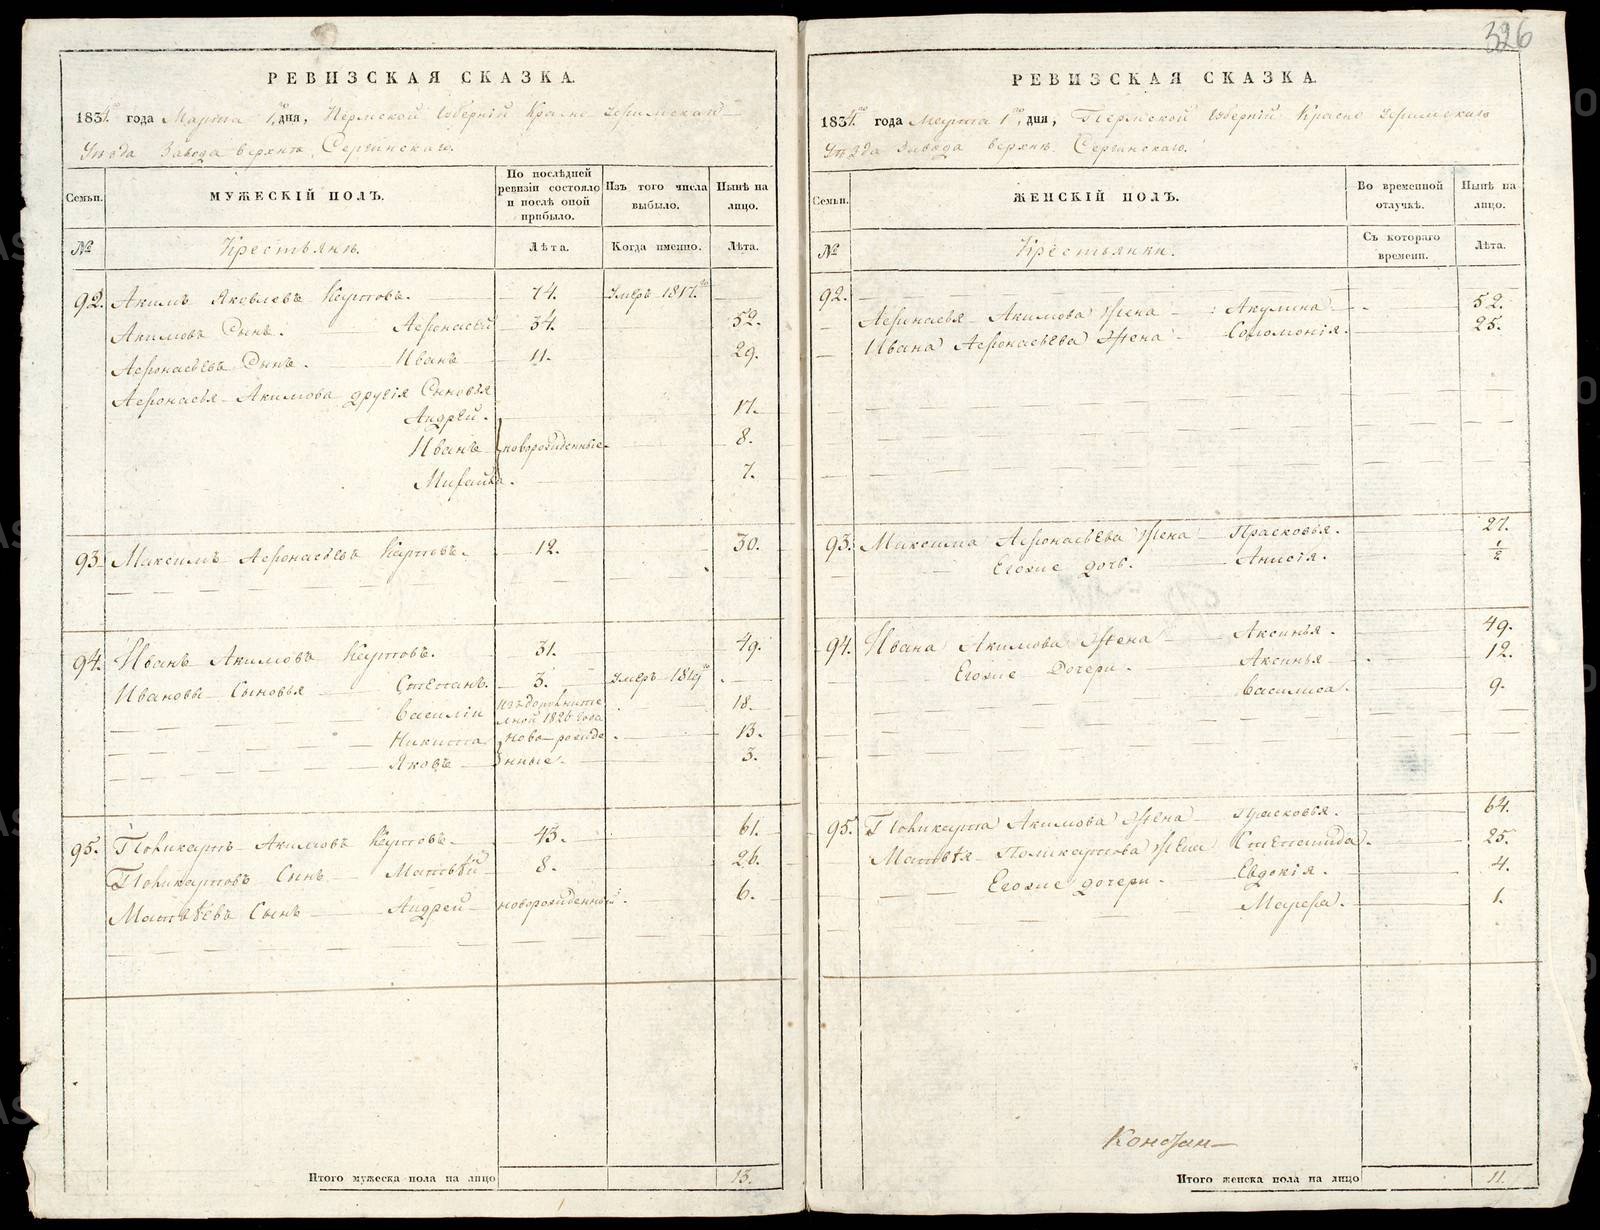 326
РЕВИЗСКАЯ СКАЗКА.
1834го года Марта 1го дня, Пермской Губернiи Красно Уфимскаго
Уѣзда Завода верхне Сергинскаго.
Семьи.
МУЖЕСКІЙ ПОЛЪ.
По послѣдней ревизіи состояло и послѣ оной прибыло.
Изъ того числа выбыло.
Нынѣ на лицо.
№
Крестьянѣ.
Лѣта.
Когда именно.
Лѣта.
92. Акимъ Яковлевъ Карповъ. 74. Умеръ 1817го
Акимовъ Сынъ. Афонасей 34. 52.
Афонасьевъ Сынъ. Иванъ 11. 29.
Афонасья Акимова другiя Сыновья
Андрей. 17.
Иванъ новорожденные. 8.
Михайла. 7.
93. Максимъ Афонасьевъ Карповъ. 12. 30.
94. Иванъ Акимовъ Карповъ. 31. 49.
Ивановы Сыновья Степанъ. 3. Умеръ 1819го
Василiи изъ дополните
льной 1826 года 18.
Никита ново-рожде 13.
Яковъ нные. 3.
95. Поликарпъ Акимовъ Карповъ. 43. 61.
Поликарповъ Сынъ Матвѣй 8. 26.
Матвѣевъ Сынъ Андрей новорожденный. 6.
Итого мужеска пола на лицо 13.
РЕВИЗСКАЯ СКАЗКА.
1834го года Марта 1го дня, Пермской Губернiи Красно Уфимскаго
Уѣзда Завода верхне Сергинскаго.
Семьи.
ЖЕНСКІЙ ПОЛЪ.
Во временной отлучкѣ.
Нынѣ на лицо.
№
Крестьянки.
Съ котораго времени.
Лѣта.
92.
Афонасья Акимова жена Акулина 52.
Ивана Афонасьева жена Соломонiя. 25.
93. Максима Афонасьева жена Прасковья. 27.
Егоже дочь. Анисiя. 1/2
94. Ивана Акимова жена Аксинья. 49.
Егоже Дочери. Аксинья 12.
Василиса. 9.
95. Поликарпа Акимова жена Прасковья. 64.
Матвѣя Поликарпова жена Степанида. 25.
Егоже дочери. Евдокiя. 4.
Марфа. 1.
Итого женска пола на лицо 11.